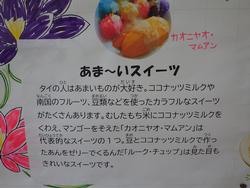 カオニャオ・
マムアン
あま～いスイーツ
タイの人はあまいものが大好き。ココナッツミルクや
南国のフルーツ、豆類などを使ったカラフルなスイーツ
がたくさんあります。むしたもち米にココナッツミルクを
くわえ、マンゴーをそえた「カオニャオ・マムアン」は
代表的なスイーツの1つ。豆とココナッツミルクで作っ
たあんをゼリーでくるんだ「ルーク・チュップ」は見た目も
きれいなスイーツです。